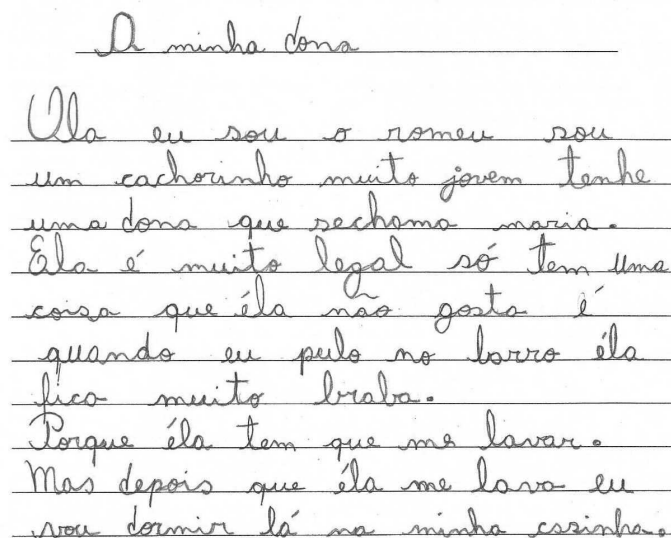 A minha dona
Ola eu sou o romeu sou
um cachorinho muito jovem tenhe
uma dona que sechama maria.
Ela é muito legal só tem uma
coisa que éla não gosta é
quando eu pulo no barro éla
fica muito braba.
Porque éla tem que me lavar.
Mas depois que éla me lava eu
vou dormir lá na minha casinha.